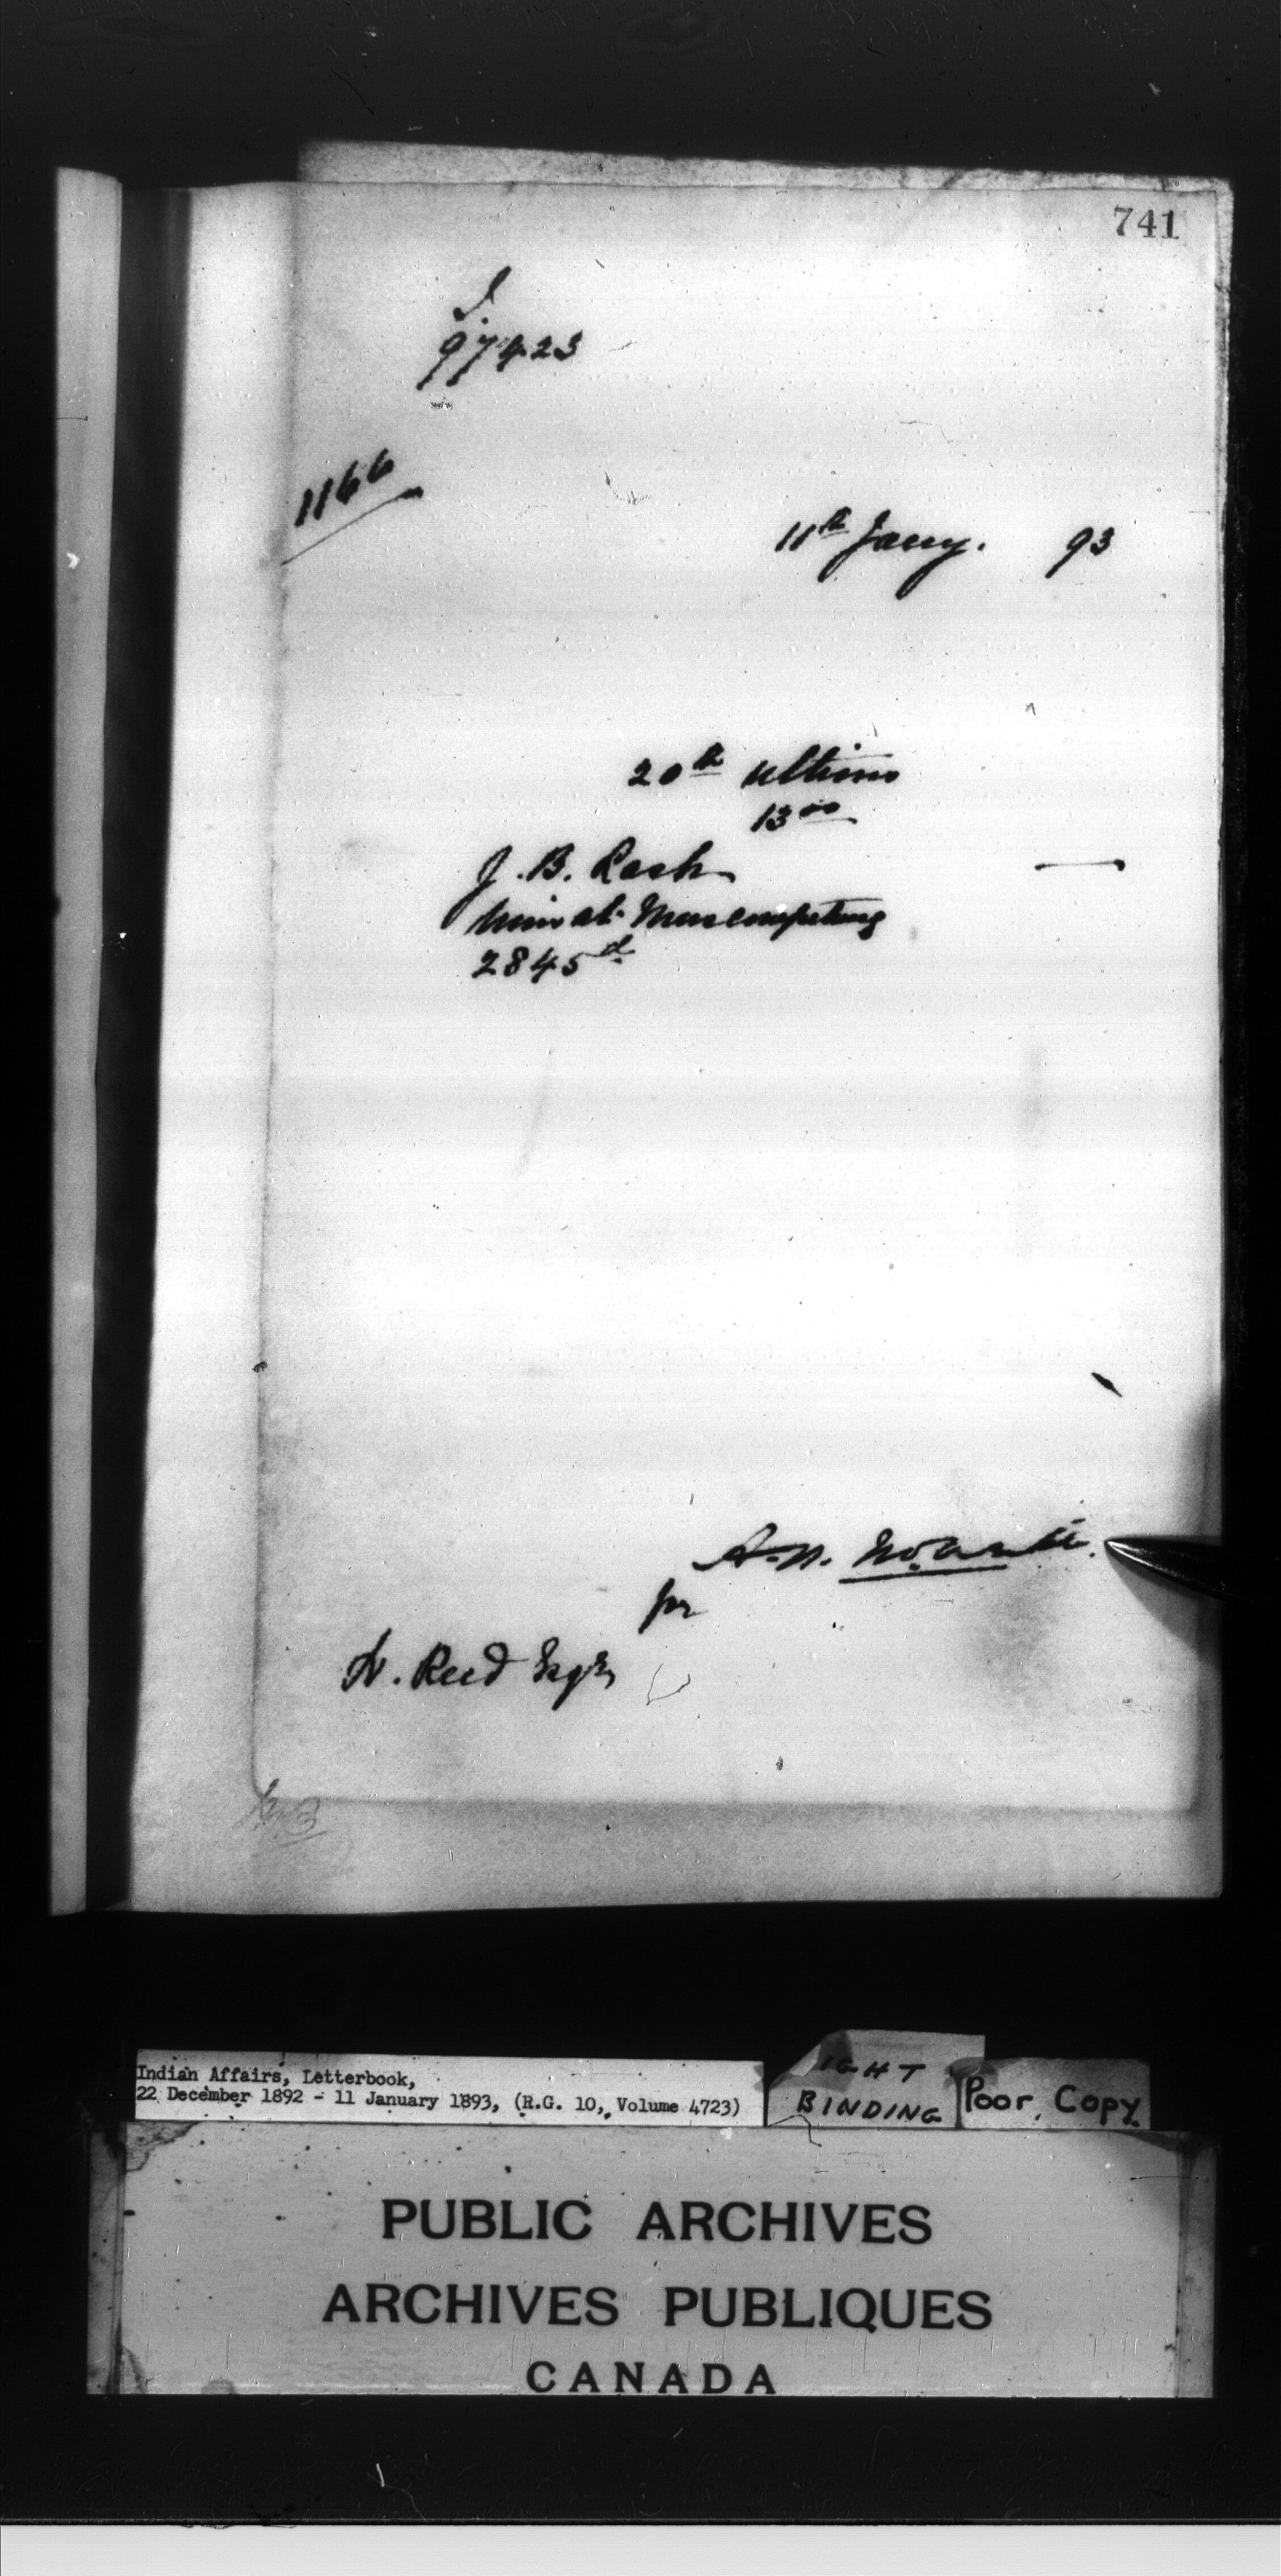 741
97423
1166
11th Jany. 93
20th ultimo
13 00
J. B. Lash
2845 d
pr
H. Reed Esqre,
Indian Affairs, Letterbook,
22 December 1892 - 11 January 1893, (R.G. 10, Volume 4723)
IGHT
BINDING
Poor Copy
PUBLIC ARCHIVES
ARCHIVES PUBLIQUES
CANADA